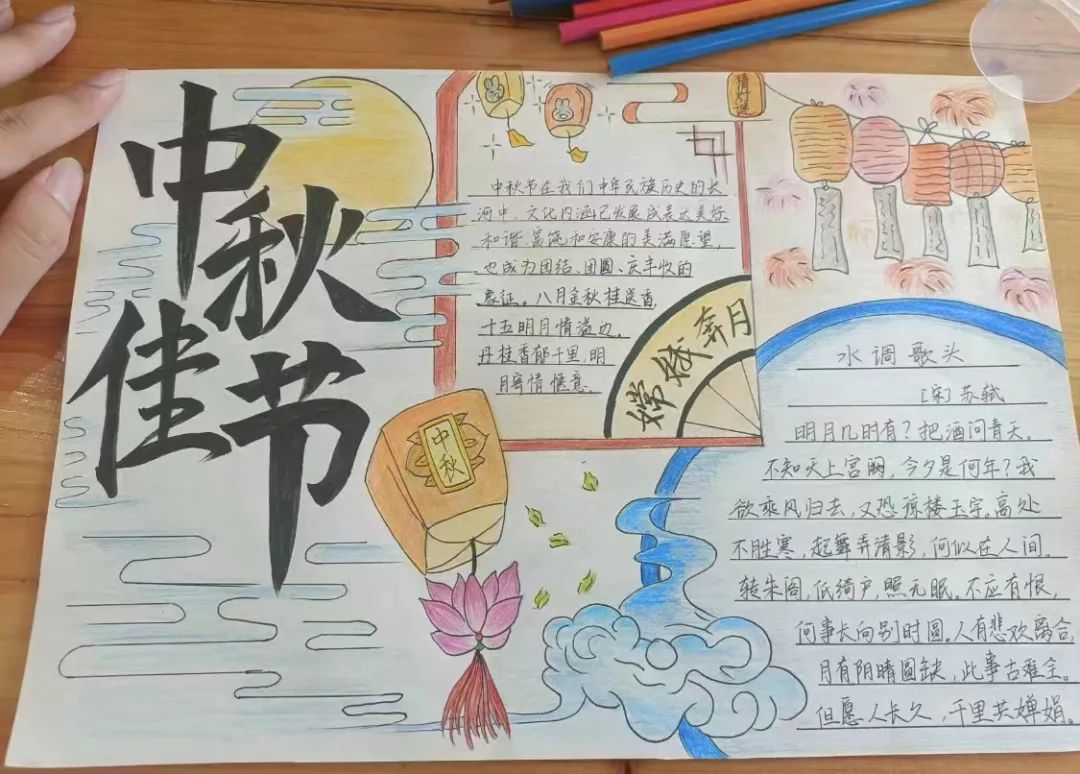 中秋
佳节
猜灯谜
中秋节在我们中华民族历史的长
河中，文化内涵已发展成表达美好
和谐、富饶和安康的美满愿望，
也成为团结、团圆、庆丰收的
象征。八月金秋桂送香，
十五明月情溢边，
丹桂香郁千里，明
月寄情惬意
嫦娥奔月
中秋
水调歌头
[宋]苏轼
明月几时有？把酒问青天。
不知天上宫阙，今夕是何年？我
欲乘风归去，又恐琼楼玉宇。高处
不胜寒，起舞弄清影，何似在人间。
转朱阁，低绮户，照无眠。不应有恨，
何事长向别时圆。人有悲欢离合，
月有阴晴圆缺，此事古难全。
但愿人长久，千里共婵娟。